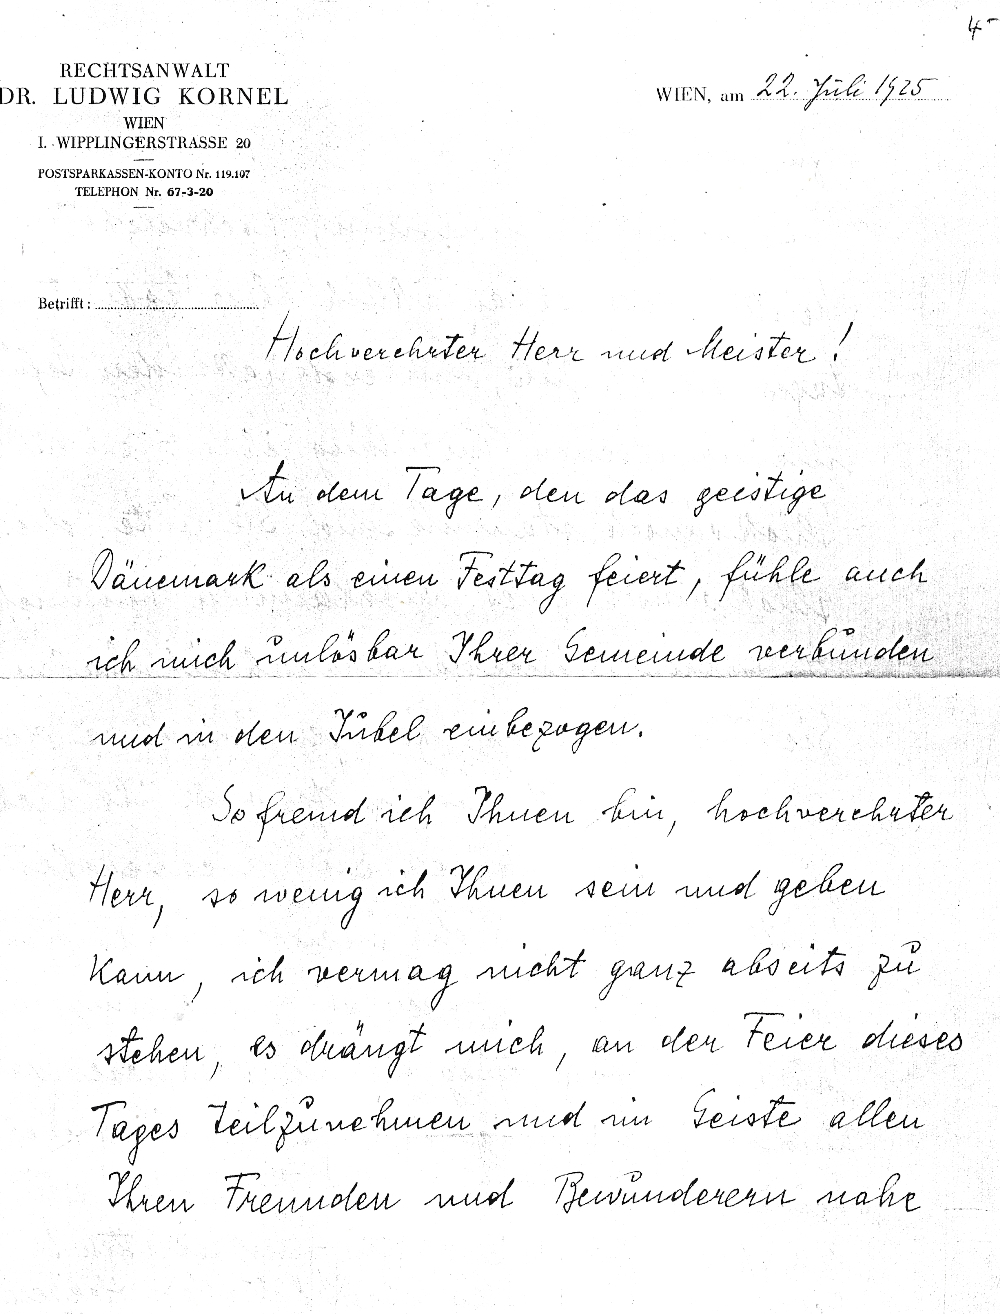 4-
RECHTSANWALT
DR. LUDWIG KORNEL
WIEN
I. WIPPLINGERSTRASSE 20
POSTSPARKASSEN-KONTO Nr. 119.107
TELEPHON Nr. 67-3-20
WIEN, am 22. Juli 1925
Betrifft:
Hochverehrter Herr und Meister!
An dem Tage, den das geistige
Dänemark als einen Festtag feiert, fühle auch
ich mich unlösbar Ihrer Gemeinde verbunden
und in den Jubel einbezogen.
So fremd ich Ihnen bin, hochverehrter
Herr, so wenig ich Ihnen sein und geben
kann, ich vermag nicht ganz abseits zu
stehen, es drängt mich, an der Feier dieses
Tages teilzunehmen und im Geiste allen
Ihren Freunden und Bewunderern nahe